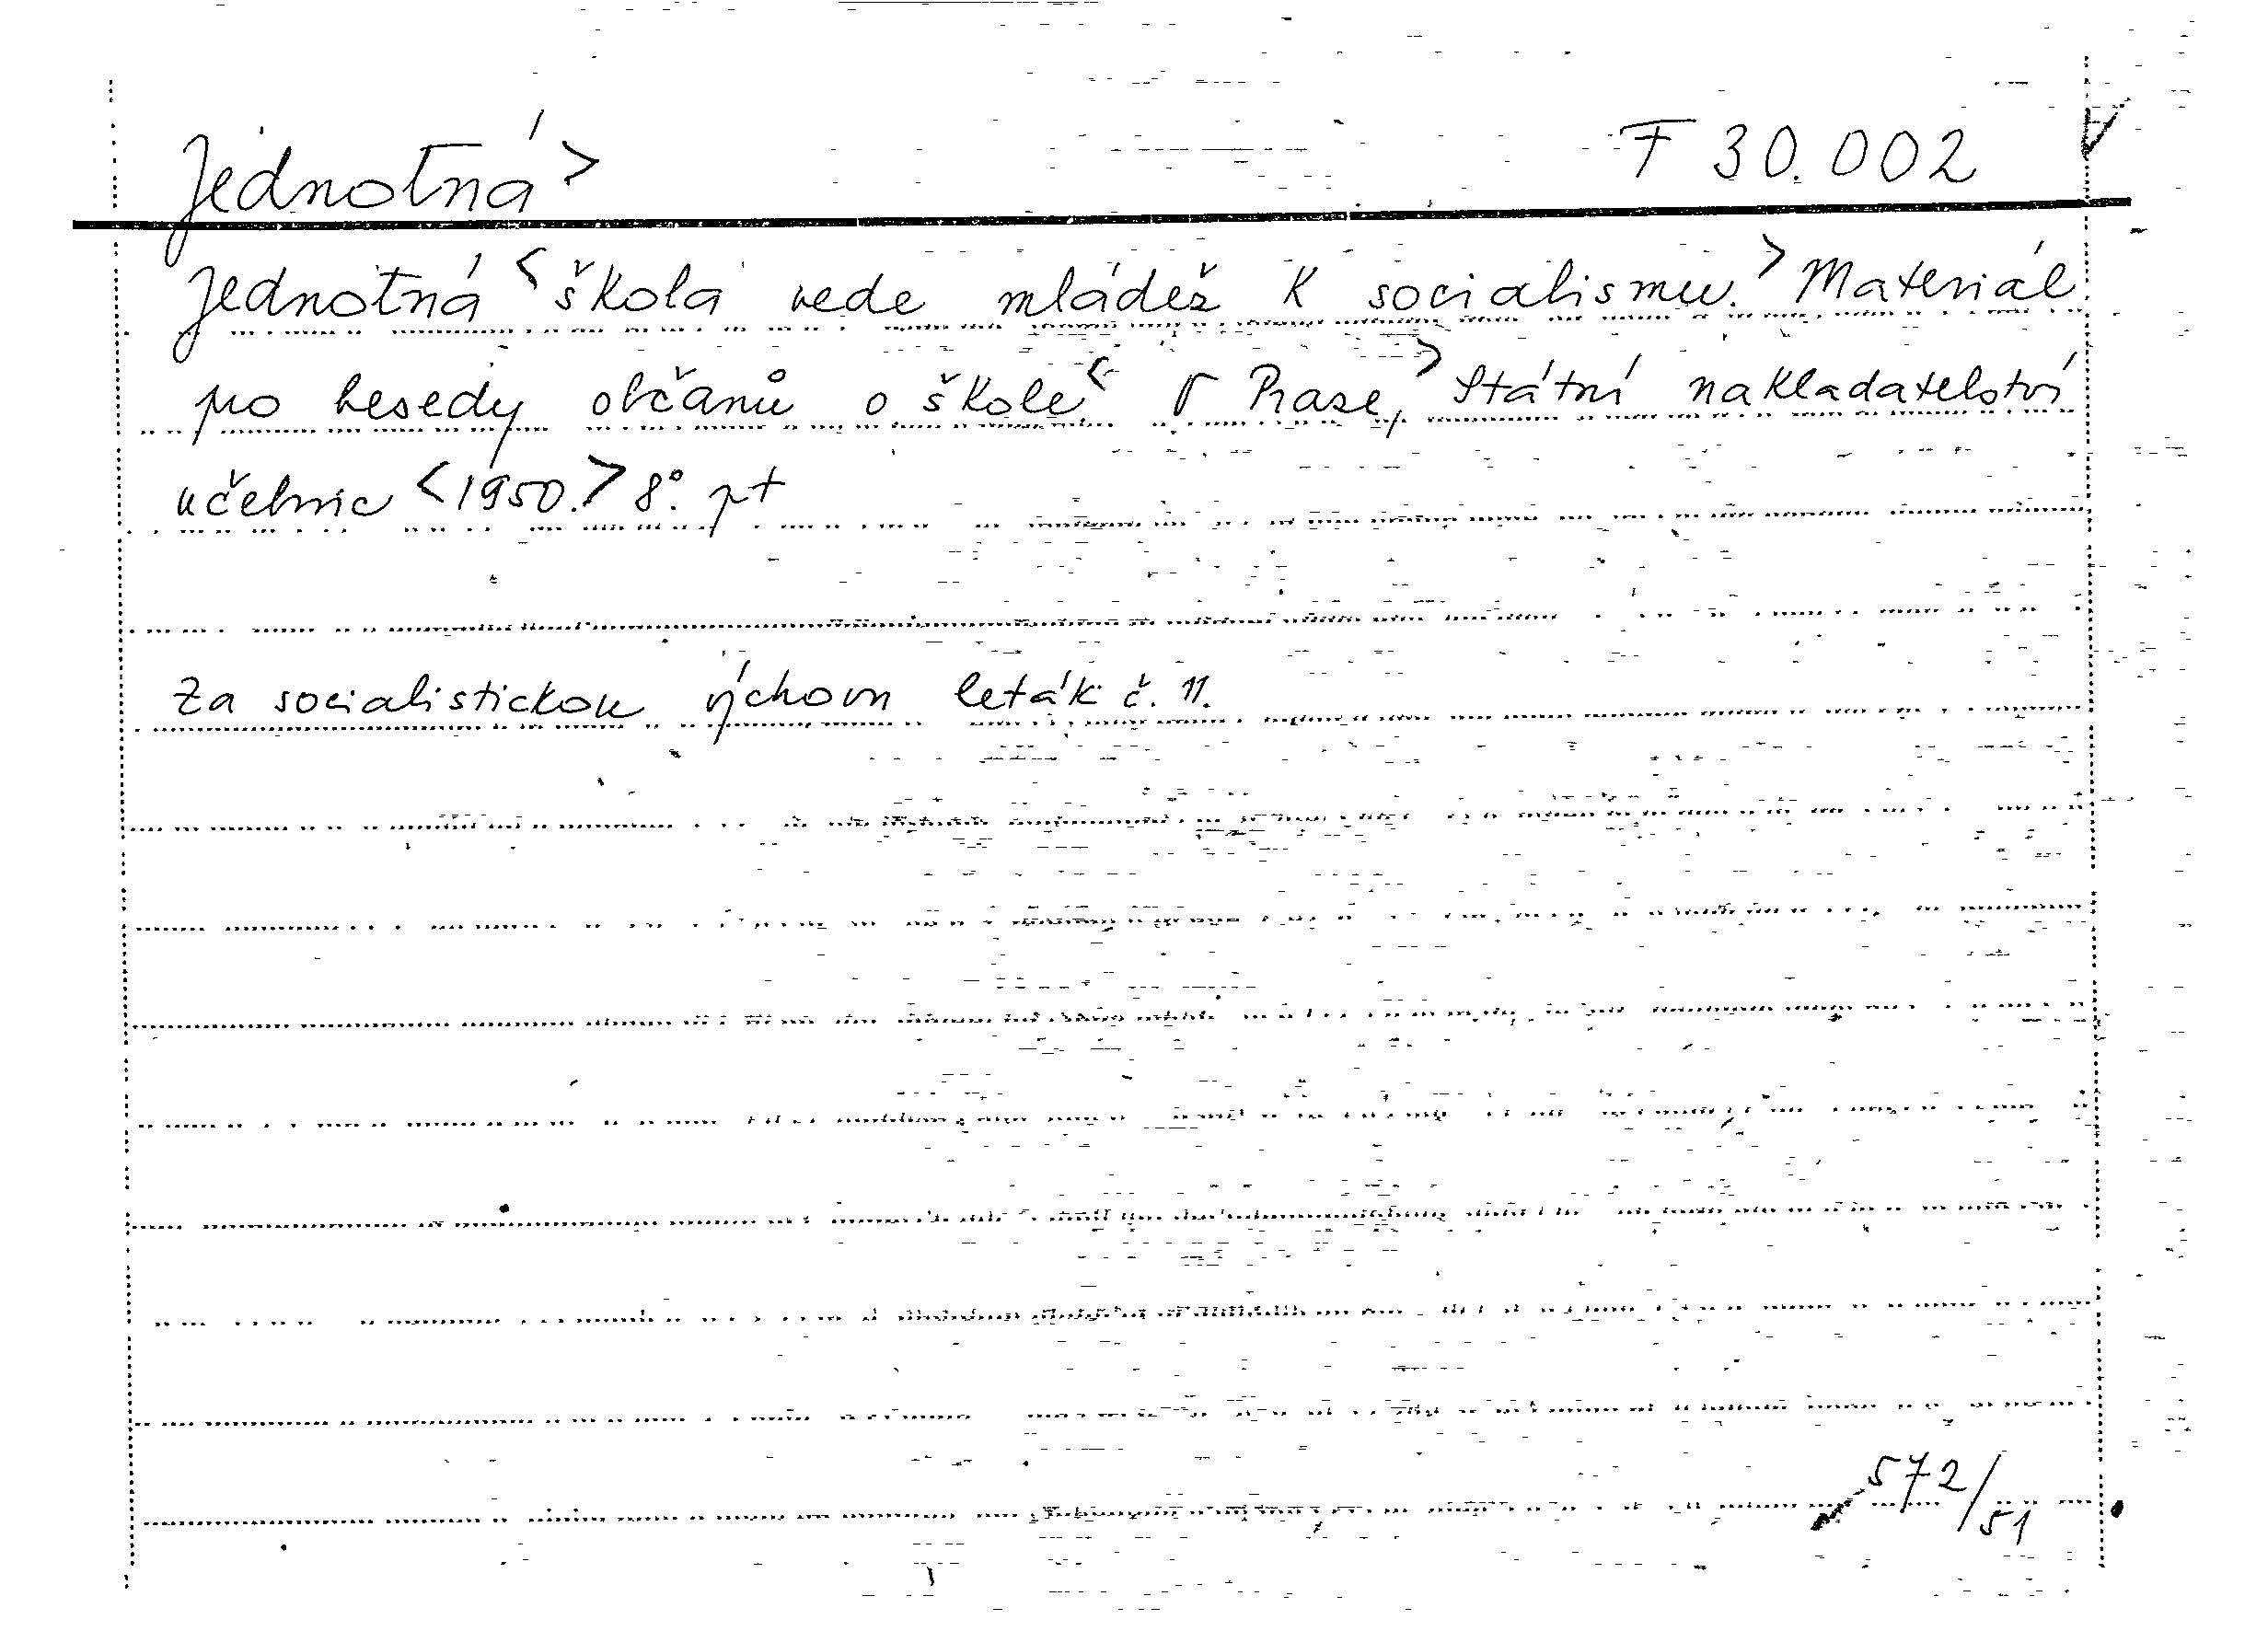 Jednotná> F 30.002
Jednotná <škola vede mládež k socialismu.> Materiál
pro besedy občanů o škole.< V Praze,> Státní nakladatelství
učebnic <1950.> 8°. pt
Za socialistickou výchovu leták č. 11.
572/51